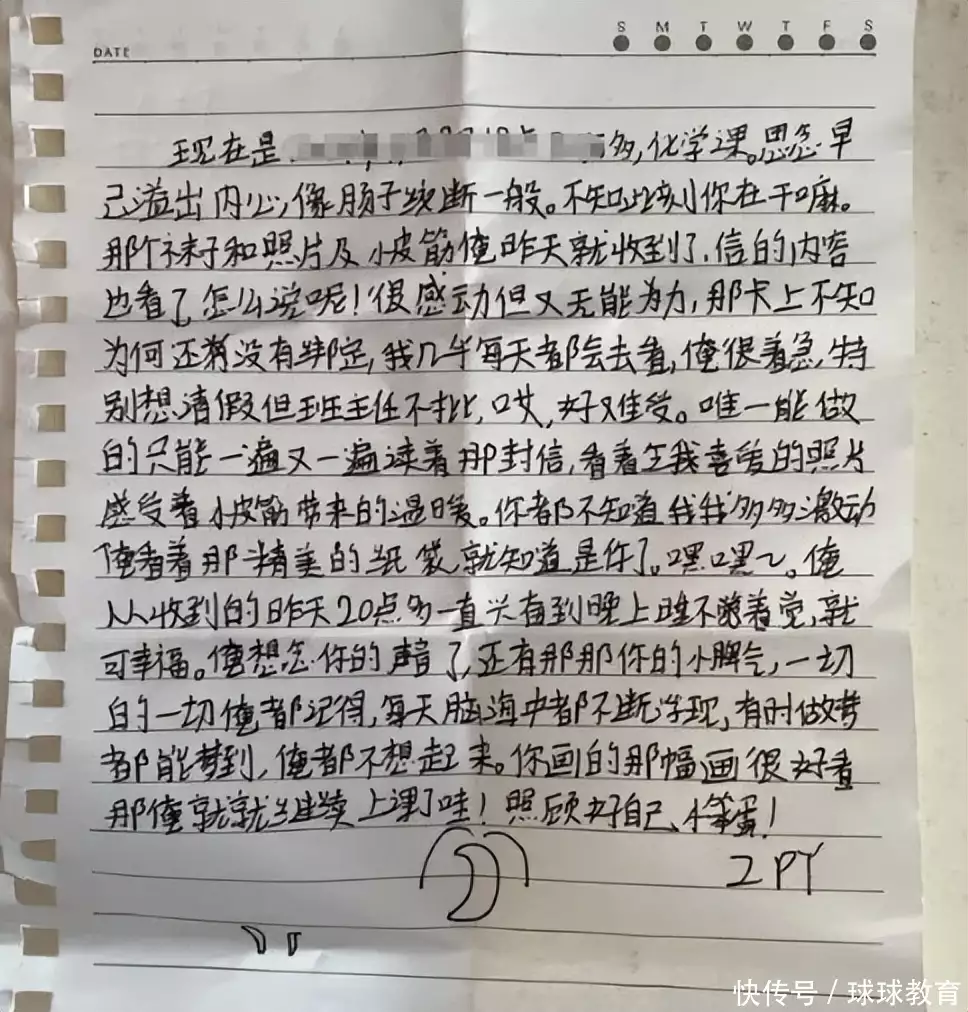 DATE
S M T W T F S
现在是 多,化学课。思念早
已溢出内心,像肠子绞断一般。不知此刻你在干嘛。
那个袜子和照片及小皮筋俺昨天就收到了,信的内容
也看了怎么说呢!很感动但又无能为力,那卡上不知
为何还没有绑定,我几乎每天都会去看,俺很着急,特
别想请假但班主任不批,哎,好难受。唯一能做
的只能一遍又一遍读着那封信,看着至我喜爱的照片
感受着小皮筋带来的温暖。你都不知道我我多多激动
俺看着那精美的纸袋就知道是你了。嘿嘿~。俺
从收到的昨天20点多一直兴奋到晚上睡不着觉,就
可幸福。俺想念你的声音了,还有那那你的小脾气,一切
的一切俺都记得,每天脑海中都不断浮现,有时做梦
都能梦到,俺都不想起来。你画的那幅画很好看
那俺就就继续上课了哇!照顾好自己,小笨蛋!
ZPY
快传号 / 球球教育